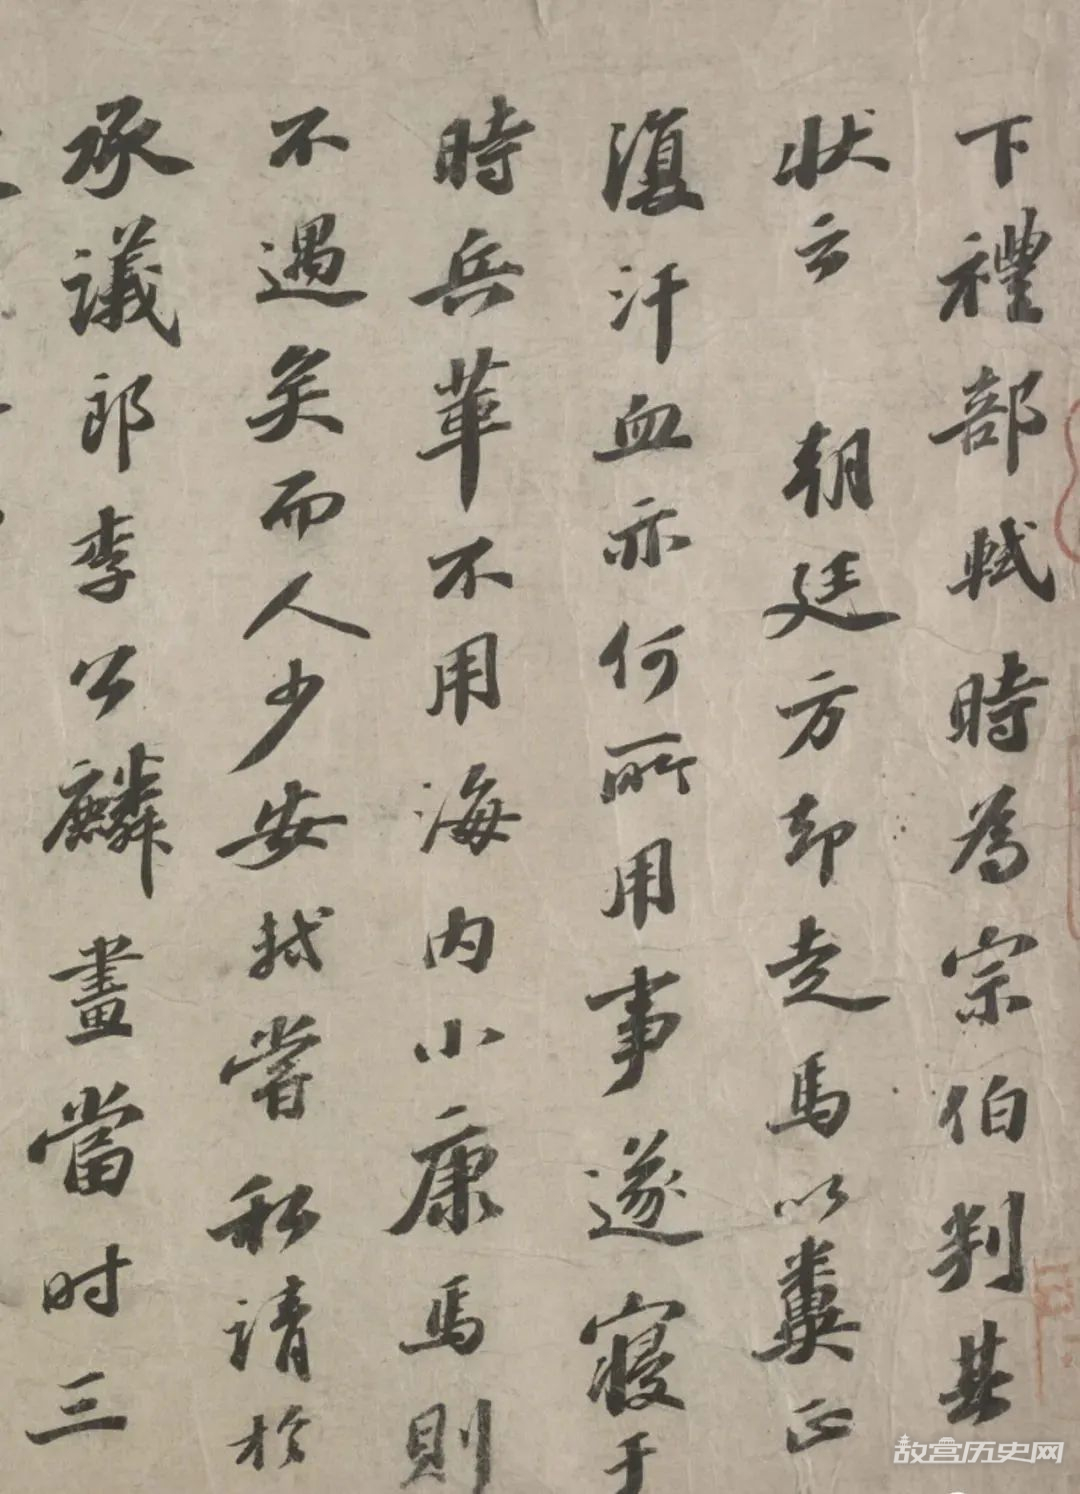 下禮部軾時為宗伯判其
狀云 朝廷方却走馬以糞正
復汗血亦何所用事遂寢于
時兵革不用海內小康馬則
不遇矣而人少安軾嘗私請於
承議郎李公麟畫當时三
故宫历史网